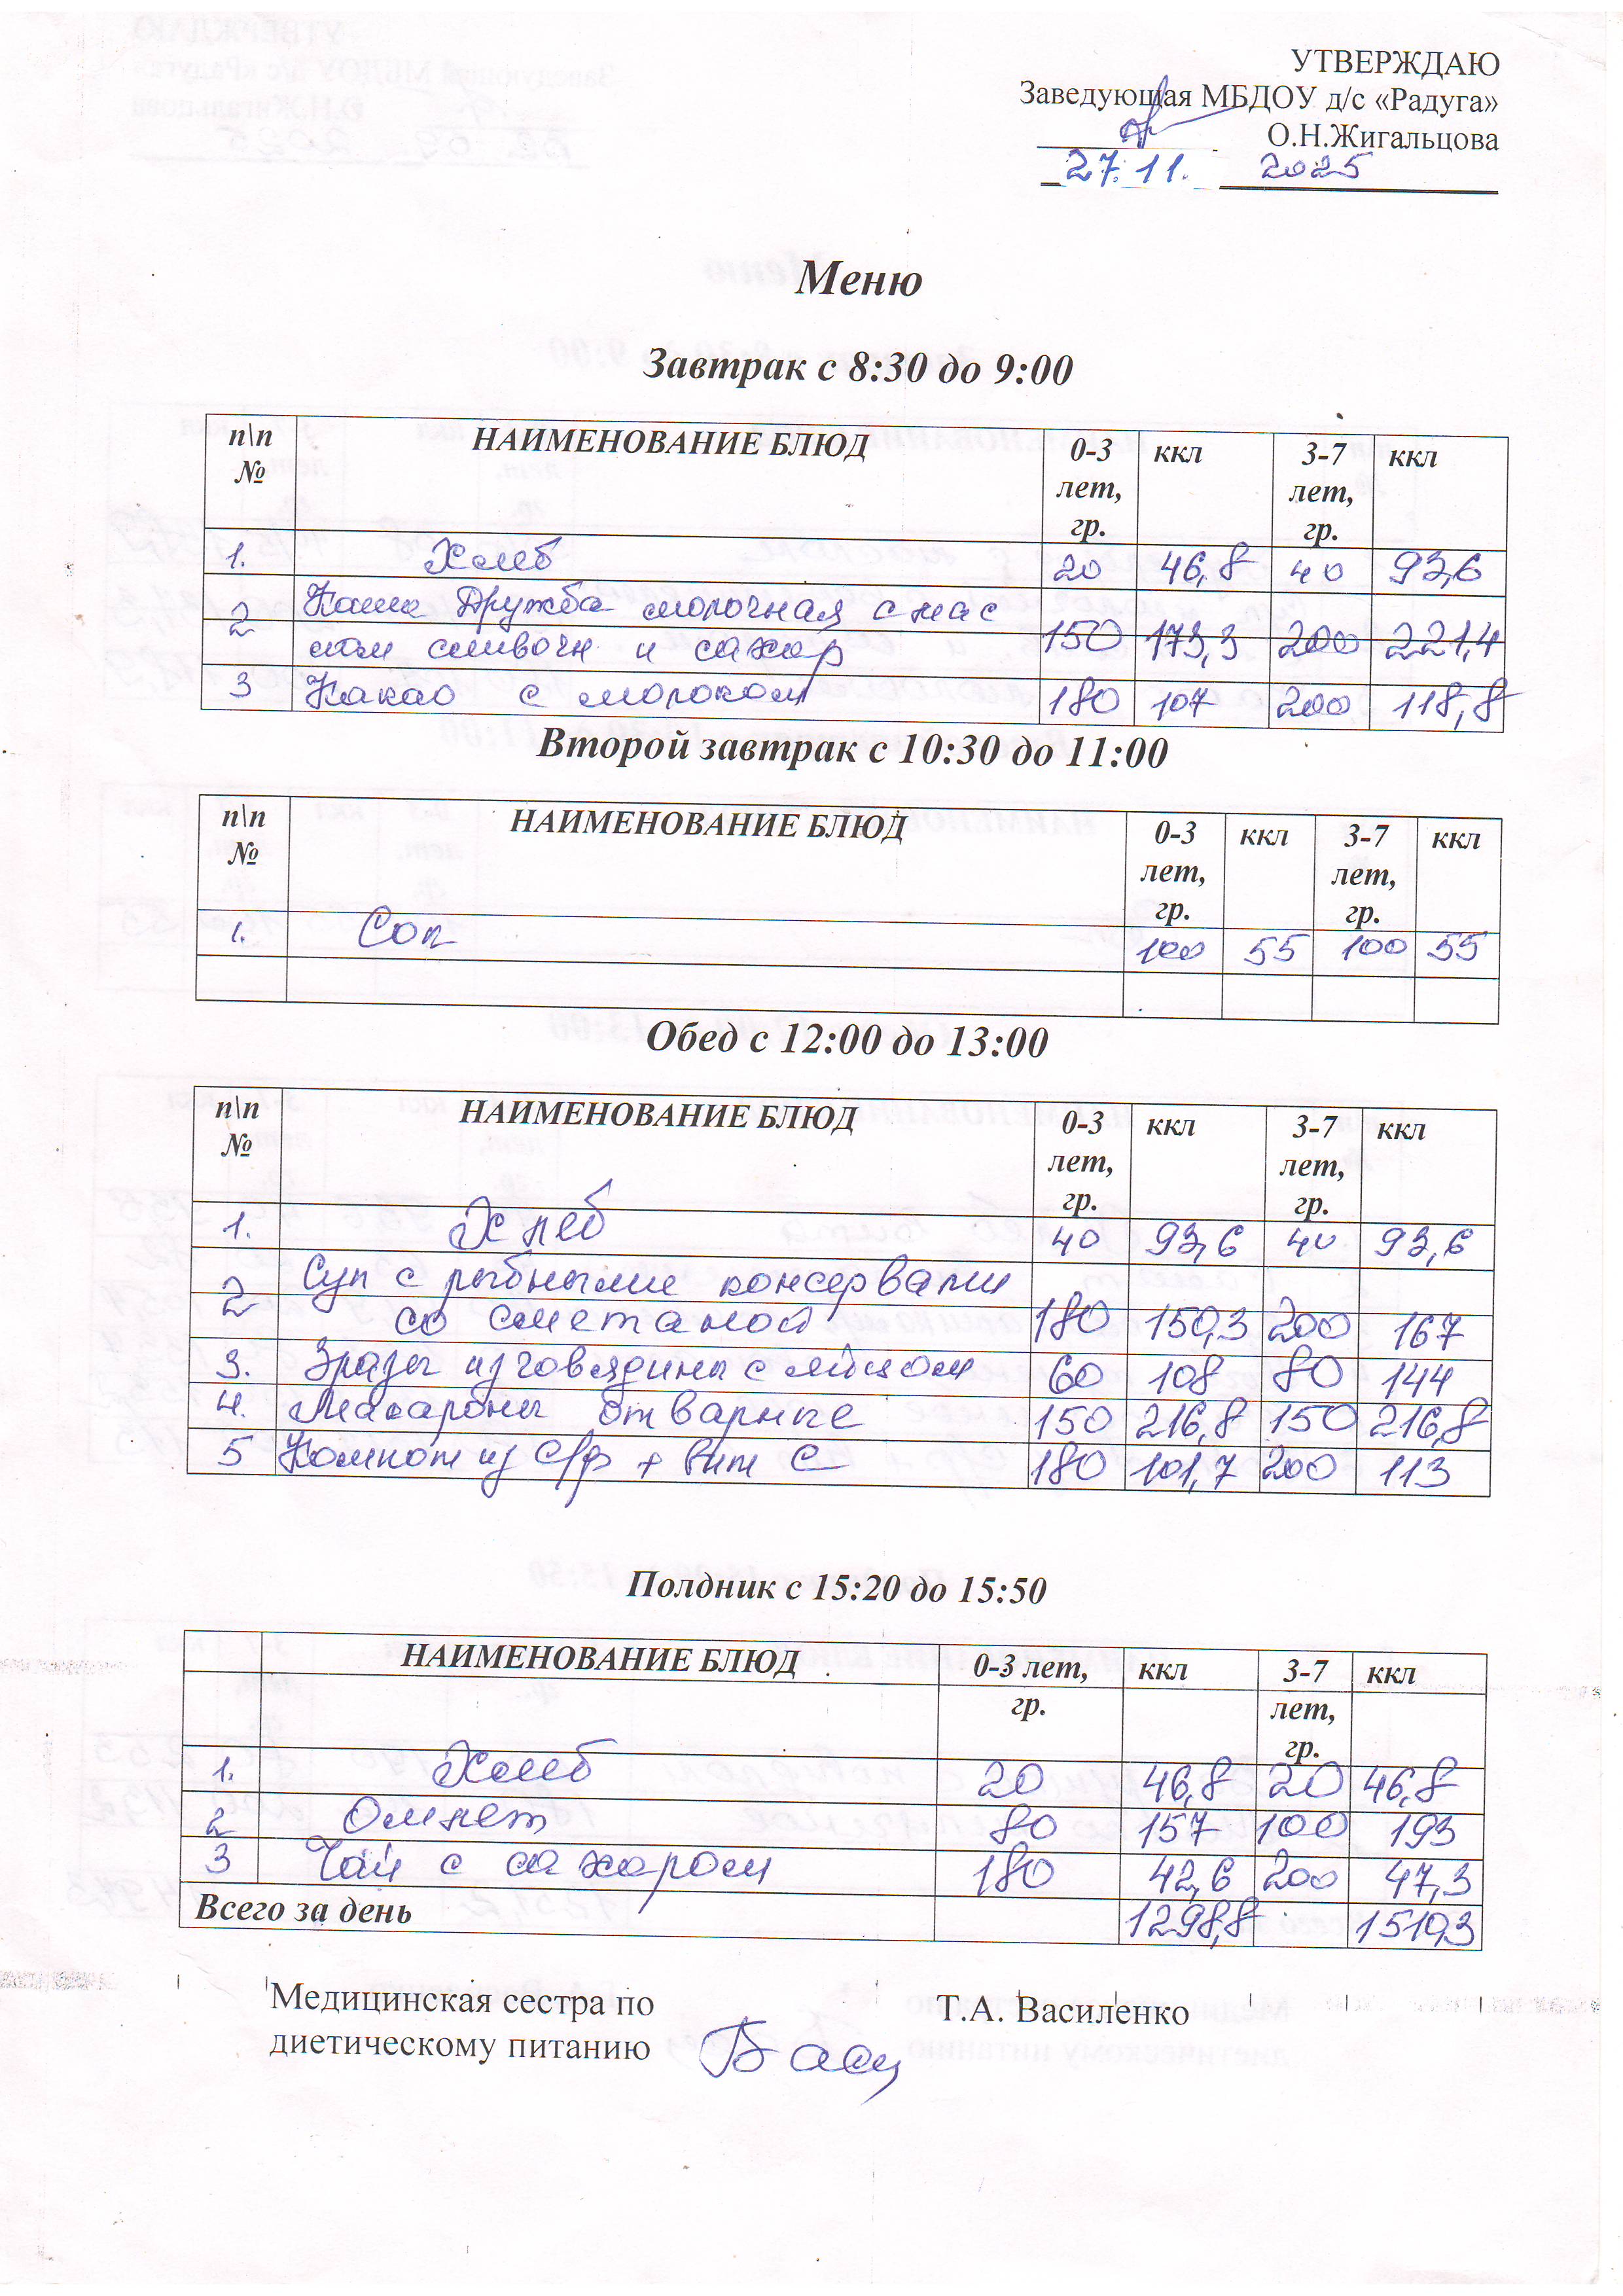 УТВЕРЖДАЮ
Заведующая МБДОУ д/с «Радуга»
О.Н.Жигальцова
27.11. 2025
Меню
Завтрак с 8:30 до 9:00
п\п № НАИМЕНОВАНИЕ БЛЮД 0-3 лет, гр. ккл 3-7 лет, гр. ккл
1. Хлеб 20 46,8 40 93,6
2 Каша Дружба молочная с мас
лом сливочн и сахар 150 173,3 200 221,4
3 Какао с молоком 180 107 200 118,8
Второй завтрак с 10:30 до 11:00
п\п № НАИМЕНОВАНИЕ БЛЮД 0-3 лет, гр. ккл 3-7 лет, гр. ккл
1. Сок 100 55 100 55
Обед с 12:00 до 13:00
п\п № НАИМЕНОВАНИЕ БЛЮД 0-3 лет, гр. ккл 3-7 лет, гр. ккл
1. Хлеб 40 93,6 40 93,6
2 Суп с рыбными консервами
со сметаной 180 150,3 200 167
3. Зразы из говядины с яйцом 60 108 80 144
4. Макароны отварные 150 216,8 150 216,8
5 Компот из с/ф + вит С 180 101,7 200 113
Полдник с 15:20 до 15:50
НАИМЕНОВАНИЕ БЛЮД 0-3 лет, гр. ккл 3-7 лет, гр. ккл
1. Хлеб 20 46,8 20 46,8
2 Омлет 80 157 100 193
3 Чай с сахаром 180 42,6 200 47,3
Всего за день 1298,8 1510,3
Медицинская сестра по Т.А. Василенко
диетическому питанию